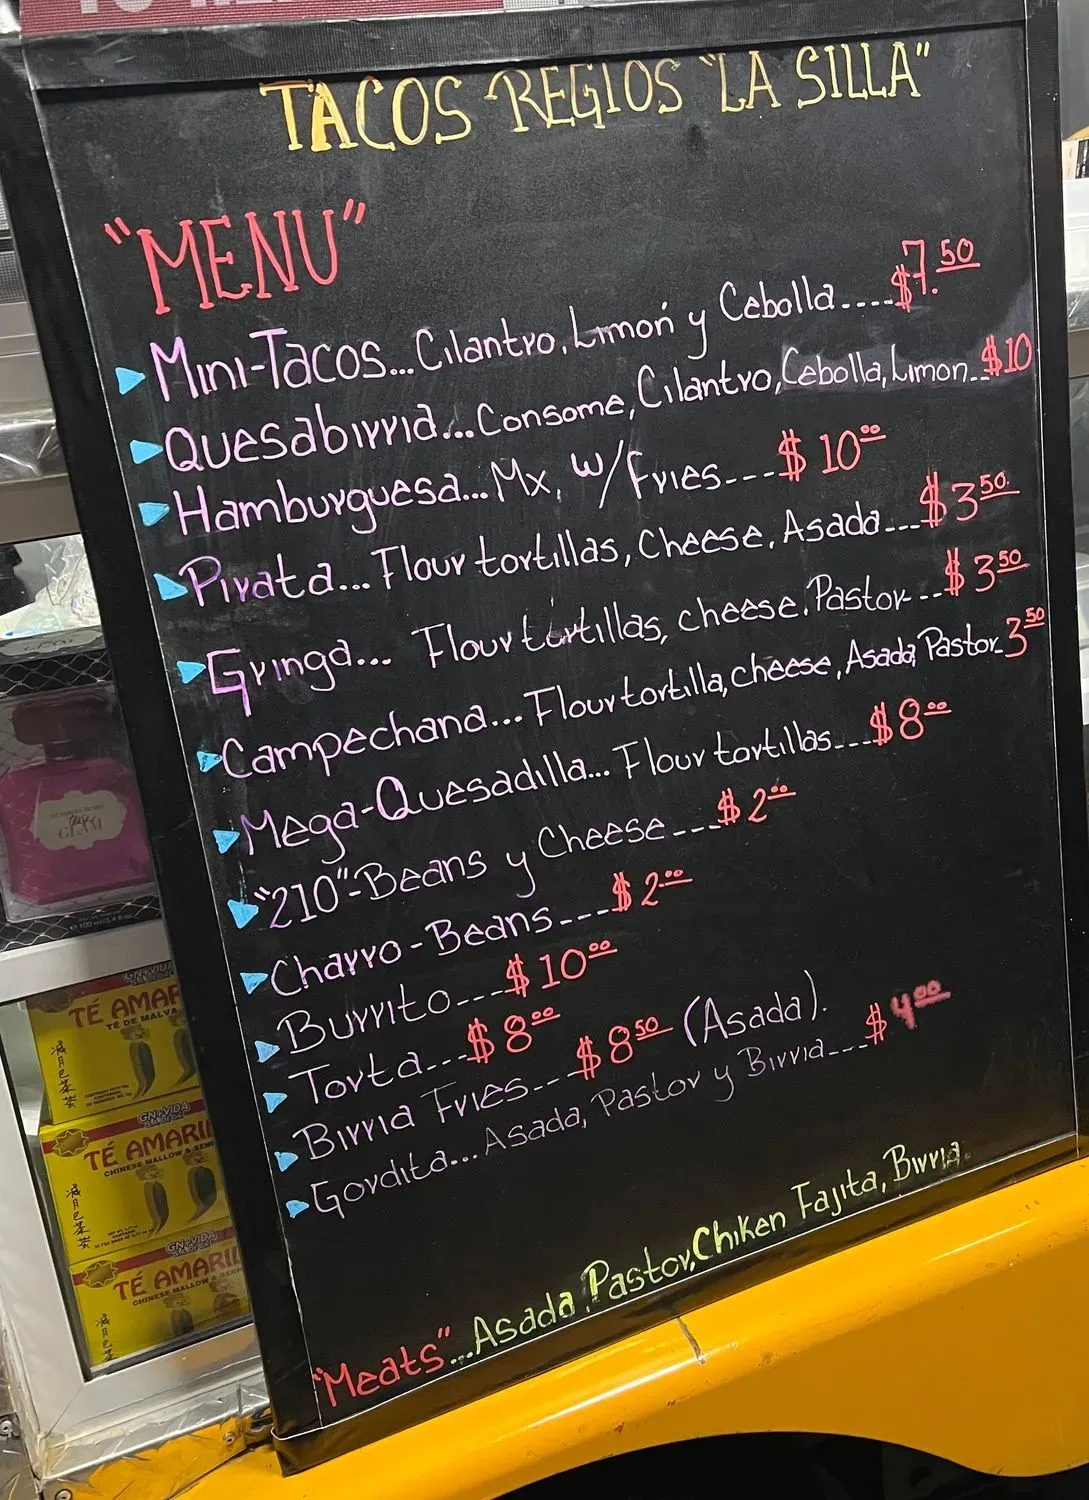 TACOS REGIOS "LA SILLA"
"MENU"
Mini-Tacos...Cilantro, Limon y Cebolla....$7.50
Quesabirria...Consome, Cilantro, Cebolla, Limon...$10
Hamburguesa...Mx, w/Fries---$10.00
Pirata...Flour tortillas, Cheese, Asada...$3.50
Gringa... Flour tortillas, cheese, Pastor--$3.50
Campechana...Flour tortilla, cheese, Asada, Pastor..3.50
Mega-Quesadilla...Flour tortillas...$8.00
"210"-Beans y Cheese---$2.00
Charro-Beans---$2.00
Burrito---$10.00
Torta---$8.00
Birria Fries---$8.50 (Asada).
Gordita...Asada, Pastor y Birria---$4.00
"Meats"...Asada, Pastor, Chiken Fajita, Birria.
GLAM
TÉ AMAR
TÉ DE MALVA
GN+VIDA
TÉ AMARI
CHINESE MALLOW & SEN
GN+VIDA
TÉ AMARI
CHINESE MALLOW & SEN